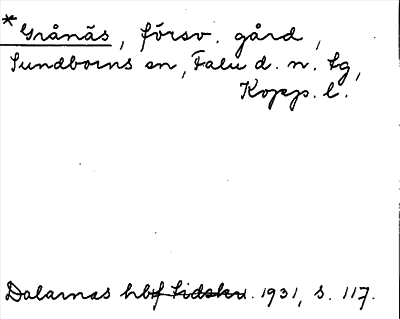 *Grånäs, försv. gård,
Sundborns sn, Falu d. n. tg,
Kopp. l.
Dalarnas hbf tidskr. 1931, s. 117.